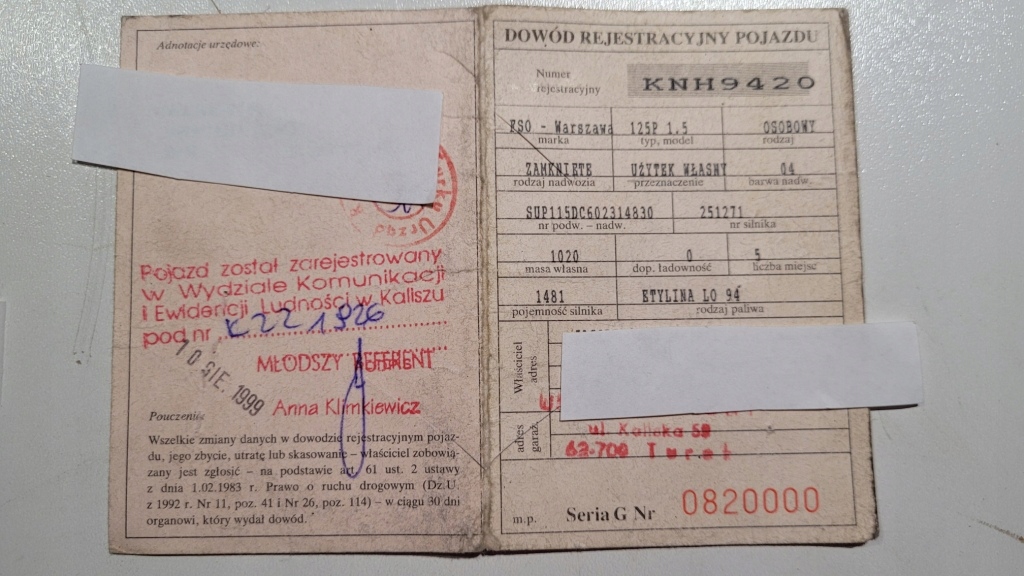 Adnotacje urzędowe:
Pojazd został zarejestrowany
w Wydziale Komunikacji
i Ewidencji Ludności w Kaliszu
pod nr
10 SIE. 1999
MŁODSZY REFERENT
Anna Klimkiewicz
Pouczenie:
Wszelkie zmiany danych w dowodzie rejestracyjnym pojaz-
du, jego zbycie, utratę lub skasowanie – właściciel zobowią-
zany jest zgłosić – na podstawie art. 61 ust. 2 ustawy
z dnia 1.02.1983 r. Prawo o ruchu drogowym (Dz.U.
z 1992 r. Nr 11, poz. 41 i Nr 26, poz. 114) – w ciągu 30 dni
organowi, który wydał dowód.
DOWÓD REJESTRACYJNY POJAZDU
Numer
rejestracyjny
KNH9420
FSO - Warszawa 125P 1.5 OSOBOWY
marka typ, model rodzaj
ZAMKNIĘTE UŻYTEK WŁASNY 04
rodzaj nadwozia przeznaczenie barwa nadw.
SUP115DC602314830 251271
nr podw. – nadw. nr silnika
1020 0 5
masa własna dop. ładowność liczba miejsc
1481 ETYLINA LO 94
pojemność silnika rodzaj paliwa
Właściciel
adres
adres
garaż.
ul. Kaliska 59
62-700 Turek
m.p. Seria G Nr 0820000